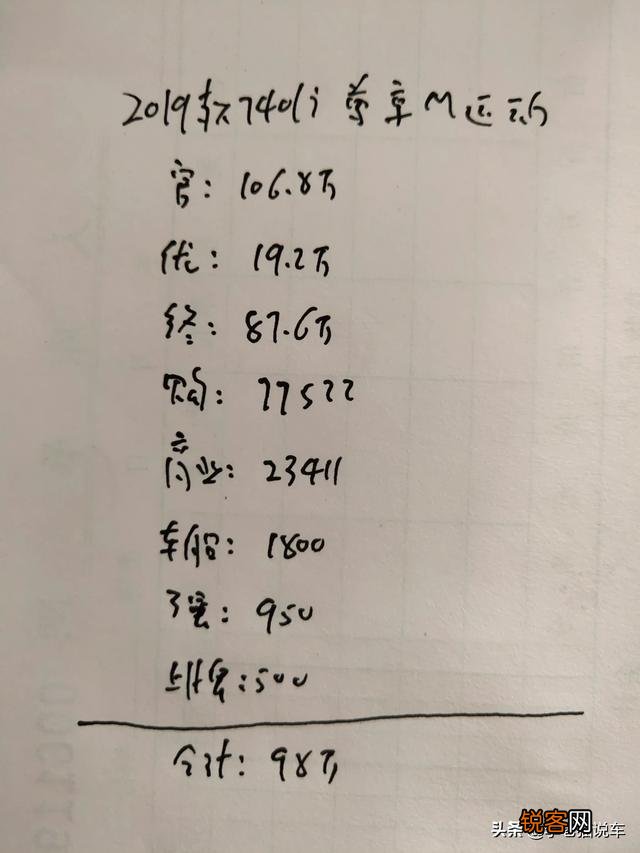 2019款740Li 尊享M运动
官: 106.8万
优: 19.2万
终: 87.6万
购: 77522
商业: 23411
车船: 1800
交强: 950
上牌费: 500
合计: 98万
锐客网
头条
说车